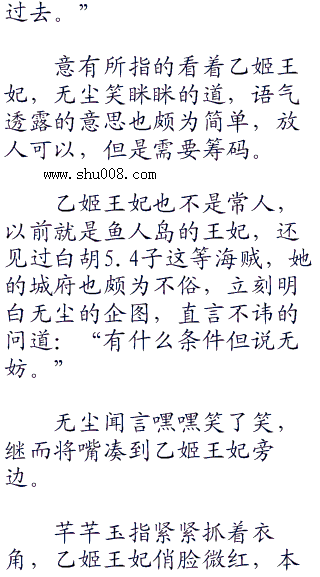 过去。”
意有所指的看着乙姬王
妃，无尘笑眯眯的道，语气
透露的意思也颇为简单，放
人可以，但是需要筹码。
www.shu008.com
乙姬王妃也不是常人，
以前就是鱼人岛的王妃，还
见过白胡5.4子这等海贼，她
的城府也颇为不俗，立刻明
白无尘的企图，直言不讳的
问道：“有什么条件但说无
妨。”
无尘闻言嘿嘿笑了笑，
继而将嘴凑到乙姬王妃旁
边。
芊芊玉指紧紧抓着衣
角，乙姬王妃俏脸微红，本